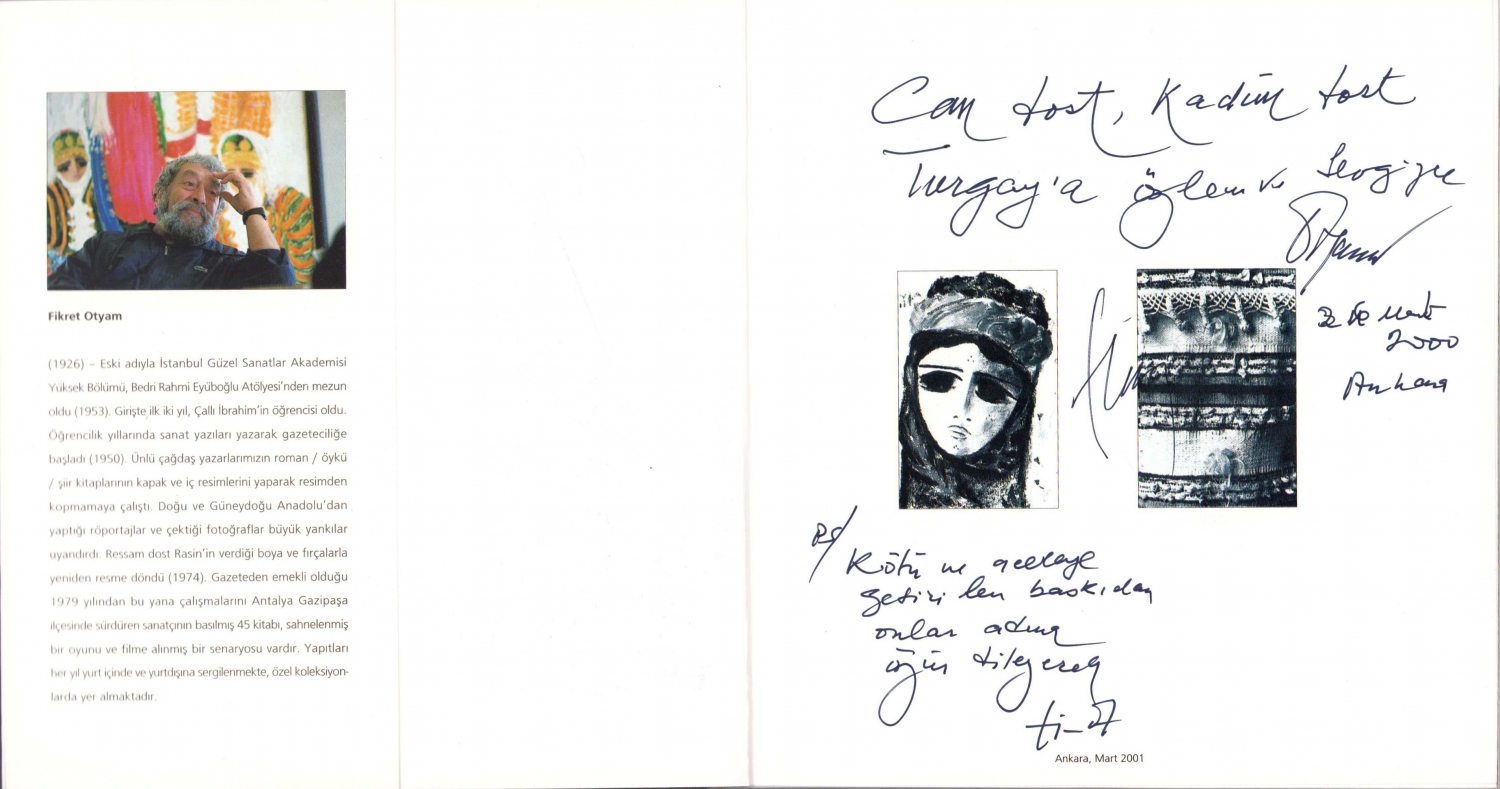 Fikret Otyam
(1926) – Eski adıyla İstanbul Güzel Sanatlar Akademisi
Yüksek Bölümü, Bedri Rahmi Eyüboğlu Atölyesi'nden mezun
oldu (1953). Girişte ilk iki yıl, Çallı İbrahim'in öğrencisi oldu.
Öğrencilik yıllarında sanat yazıları yazarak gazeteciliğe
başladı (1950). Ünlü çağdaş yazarlarımızın roman / öykü
/ şiir kitaplarının kapak ve iç resimlerini yaparak resimden
kopmamaya çalıştı. Doğu ve Güneydoğu Anadolu'dan
yaptığı röportajlar ve çektiği fotoğraflar büyük yankılar
uyandırdı. Ressam dost Rasin'in verdiği boya ve fırçalarla
yeniden resme döndü (1974). Gazeteden emekli olduğu
1979 yılından bu yana çalışmalarını Antalya Gazipaşa
ilçesinde sürdüren sanatçının basılmış 45 kitabı, sahnelenmiş
bir oyunu ve filme alınmış bir senaryosu vardır. Yapıtları
her yıl yurt içinde ve yurtdışına sergilenmekte, özel koleksiyon-
larda yer almaktadır.
Can dost, Kadim dost
Turgay'a özlem ve Sevgiyle
Otyam
2000
Ankara
Kötü ve aceleye
getirilen baskıdan
onlar adına
özür dileyerek
Ankara, Mart 2001